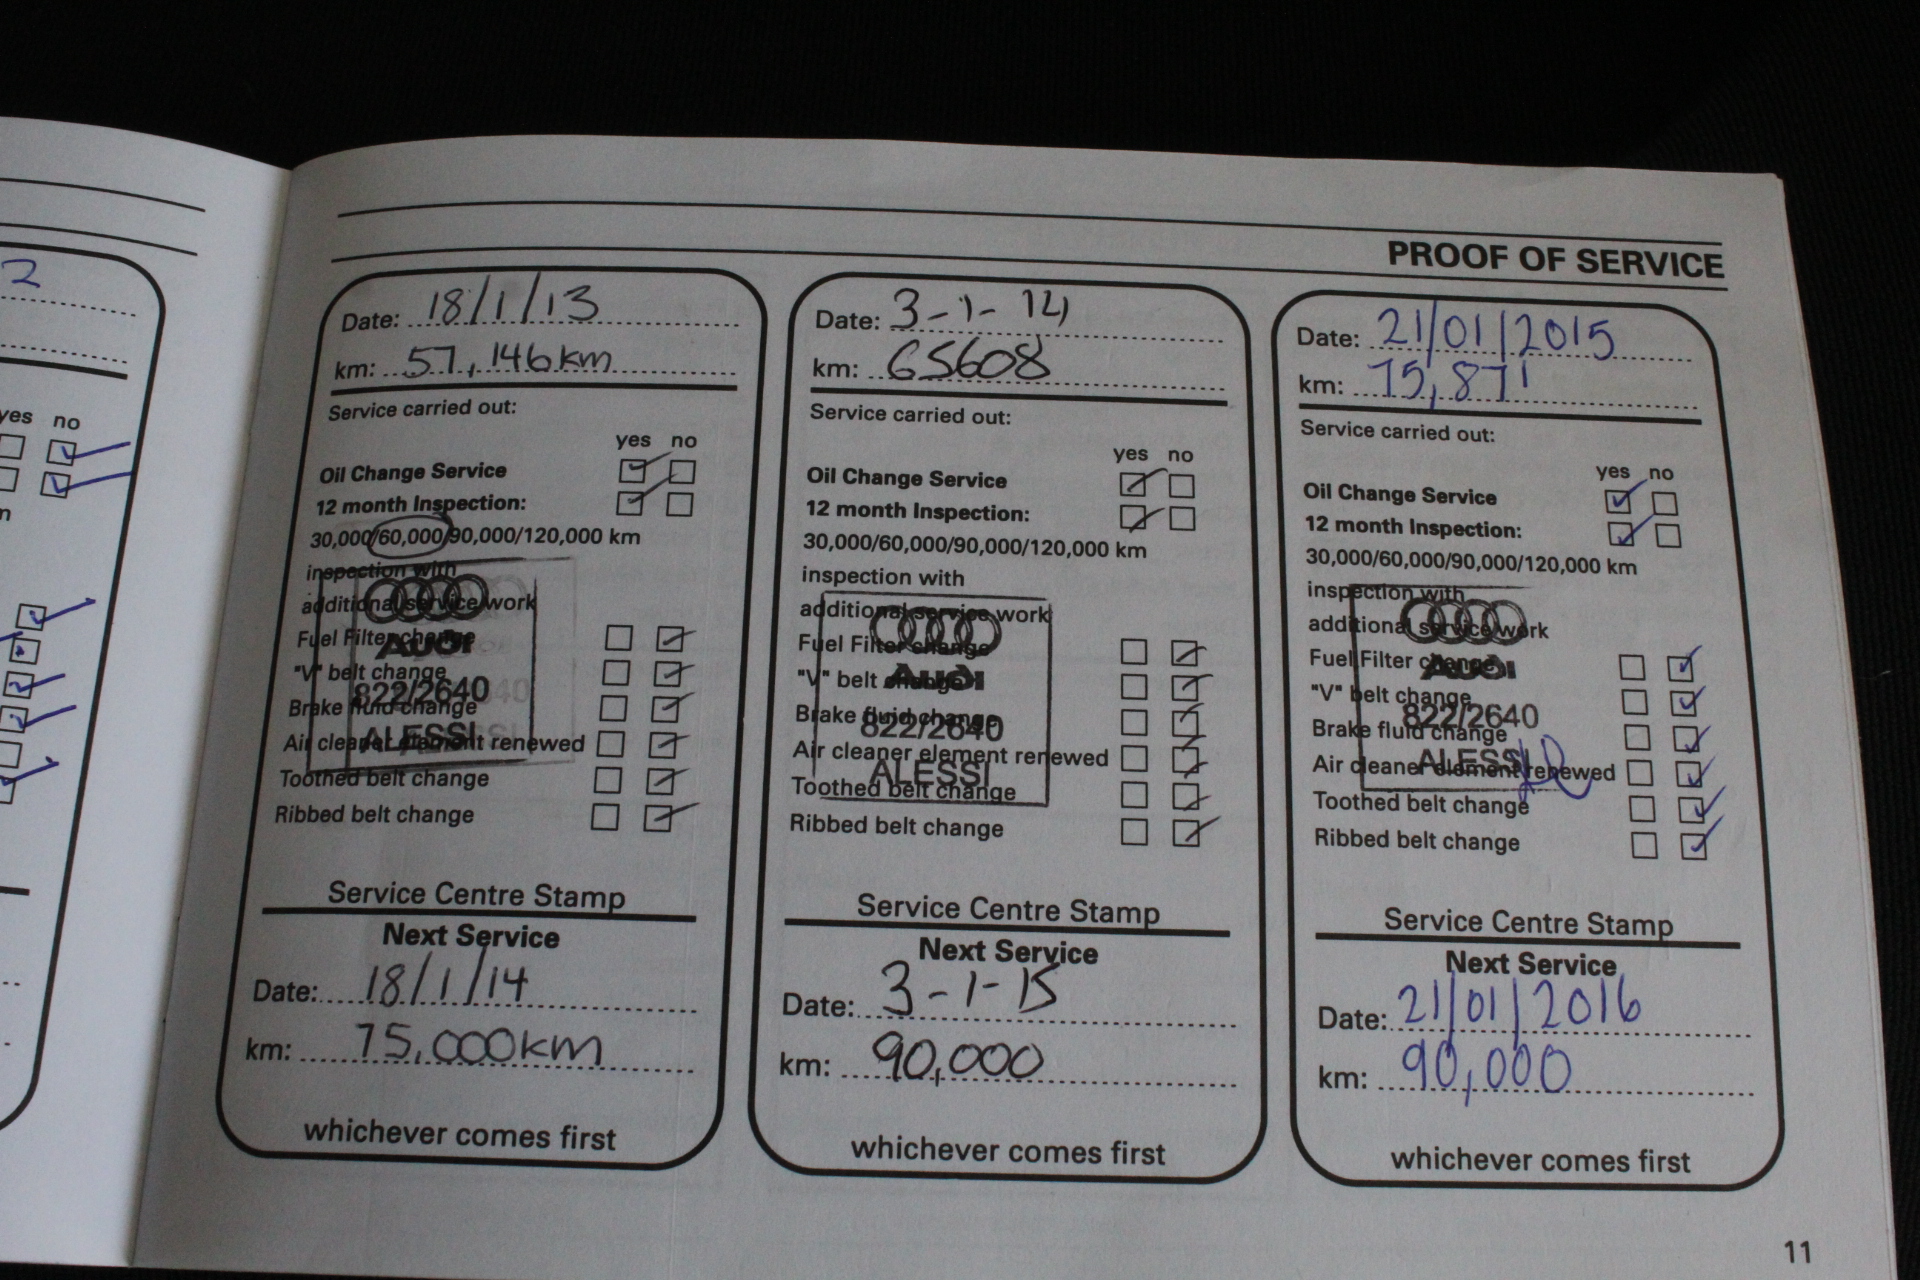 2
yes no
PROOF OF SERVICE
Date: 18/1/13
km: 57,146km
Service carried out:
yes no
Oil Change Service
12 month Inspection:
30,000/60,000/90,000/120,000 km
inspection with
additional service work
Fuel Filter change
"V" belt change
Brake fluid change
Air cleaner element renewed
Toothed belt change
Ribbed belt change
Audi
822/2640
ALESSI
Service Centre Stamp
Next Service
Date: 18/1/14
km: 75,000km
whichever comes first
Date: 3-1-14
km: 65608
Service carried out:
yes no
Oil Change Service
12 month Inspection:
30,000/60,000/90,000/120,000 km
inspection with
additional service work
Fuel Filter change
"V" belt change
Brake fluid change
Air cleaner element renewed
Toothed belt change
Ribbed belt change
Audi
822/2640
ALESSI
Service Centre Stamp
Next Service
Date: 3-1-15
km: 90,000
whichever comes first
Date: 21/01/2015
km: 75,871
Service carried out:
yes no
Oil Change Service
12 month Inspection:
30,000/60,000/90,000/120,000 km
inspection with
additional service work
Fuel Filter change
"V" belt change
Brake fluid change
Air cleaner element renewed
Toothed belt change
Ribbed belt change
Audi
822/2640
ALESSI
Service Centre Stamp
Next Service
Date: 21/01/2016
km: 90,000
whichever comes first
11